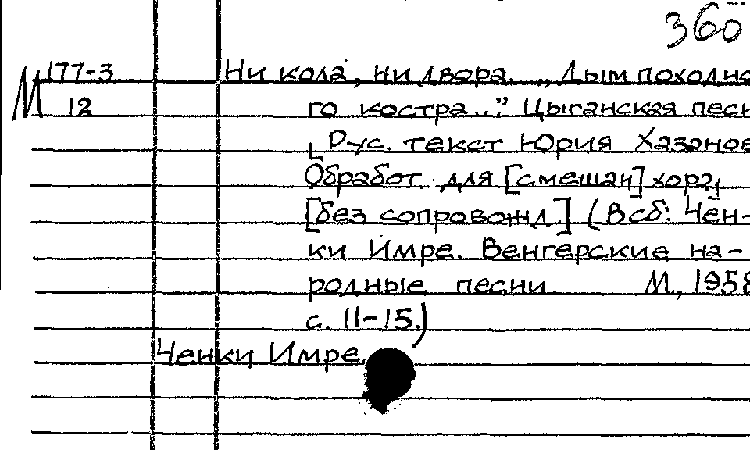 360
177-3 Ни кола, ни двора. „Дым походно
М 12 го костра..." Цыганская песн
[Рус. текст Юрия Хазанов
Обработ. для [смешан] хора,
[без сопровожд.] (В сб: Чен-
ки Имре. Венгерские на-
родные песни М., 1958
с. 11-15.)
Ченки Имре.